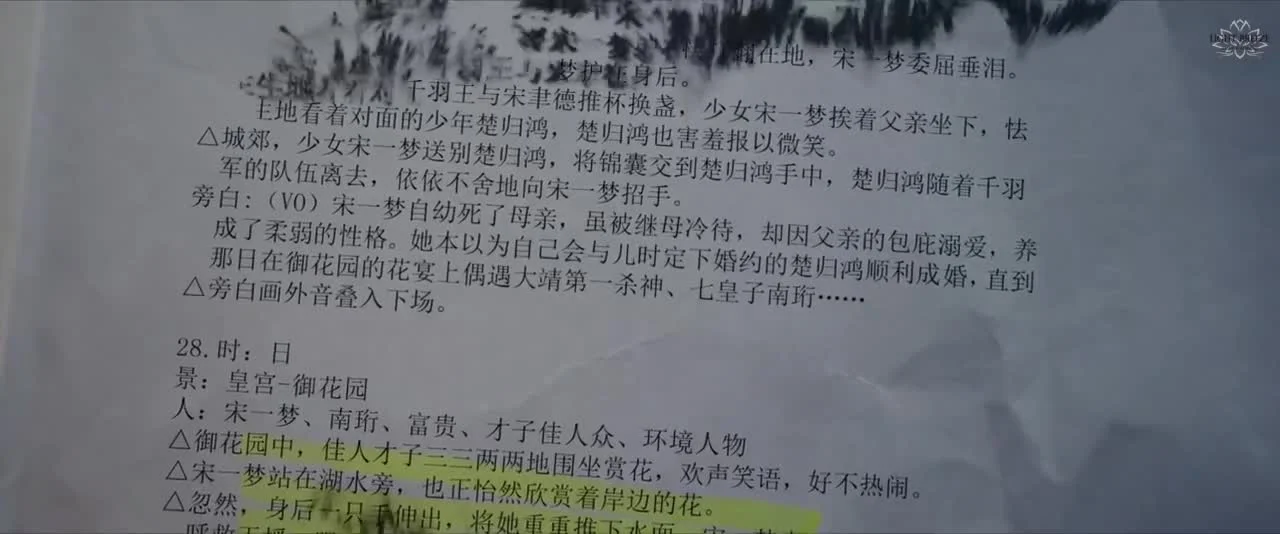 LIGHT BREEZE
在地，宋一梦委屈垂泪。
梦护在身后。
千羽王与宋聿德推杯换盏，少女宋一梦挨着父亲坐下，怯
生地看着对面的少年楚归鸿，楚归鸿也害羞报以微笑。
△城郊，少女宋一梦送别楚归鸿，将锦囊交到楚归鸿手中，楚归鸿随着千羽
军的队伍离去，依依不舍地向宋一梦招手。
旁白：（VO）宋一梦自幼死了母亲，虽被继母冷待，却因父亲的包庇溺爱，养
成了柔弱的性格。她本以为自己会与儿时定下婚约的楚归鸿顺利成婚，直到
那日在御花园的花宴上偶遇大靖第一杀神、七皇子南珩……
△旁白画外音叠入下场。
28.时：日
景：皇宫-御花园
人：宋一梦、南珩、富贵、才子佳人众、环境人物
△御花园中，佳人才子三三两两地围坐赏花，欢声笑语，好不热闹。
△宋一梦站在湖水旁，也正怡然欣赏着岸边的花。
△忽然，身后一只手伸出，将她重重推下水面，宋一梦